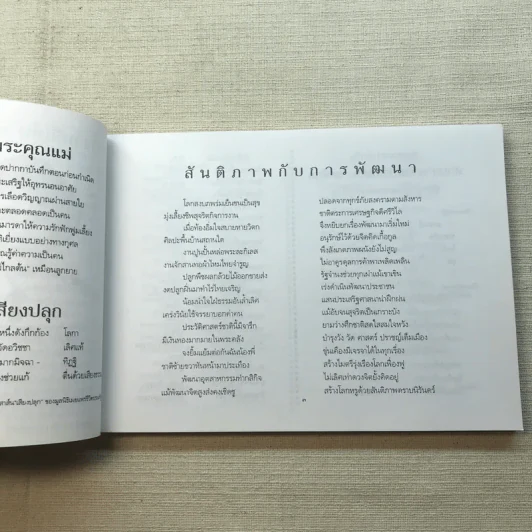 พระคุณแม่
สันติภาพกับการพัฒนา
โลกสงบภพร่มเย็นชนเป็นสุข
มุ่งเลี้ยงชีพสุจริตกิจการงาน
เมื่อท้องอิ่มใจสบายหายวิตก
ศิลปะพื้นบ้านสถานใด
งานปูนปั้นหล่อพระลงกิเลส
งานจักสานทอผ้าไหมไทยจำรูญ
ปลูกพืชผลกล้วยไม้ออกขายส่ง
งดปลูกฝิ่นมาทำไร่ไทยเจริญ
น้อมนำใจใฝ่ธรรมอันล้ำเลิศ
เคร่งวินัยใช้จรรยาบอกค่าคน
ประวัติศาสตร์ชาตินี้มีจารึก
มีเงินทองมากมายในพระคลัง
จงยิ้มแย้มต่อกันฉันน้องพี่
ชาติซ้ายขวาหันหน้ามาประเทือง
พัฒนาอุตสาหกรรมทำกสิกิจ
แม้พัฒนาจิตสูงส่งคงเชิดชู
ปลอดจากทุกข์ภัยสงครามตามสังหาร
ชาติตระการเศรษฐกิจดีศรีวิไล
จึงหยิบยกเรื่องพัฒนามาเริ่มใหม่
อนุรักษ์ไว้ด้วยจิตคิดเกื้อกูล
พึงสังเกตภาพผนังยังไม่สูญ
ไม่อาดูรดุลการค้าพาเพลิดเพลิน
รัฐจำนงช่วยทุกเล่าแม้วเขาเขิน
เร่งดำเนินพัฒนาประชาชน
แสนประเสริฐศาสนานำฝึกฝน
แม้อับจนสุจริตเป็นเกราะบัง
ยามว่างศึกชาติสดใสสมใจหวัง
บำรุงวัง วัด ศาสตร์ ปราชญ์เต็มเมือง
ขุ่นเคืองมีเจรจาได้ในทุกเรื่อง
สร้างไมตรีรุ่งเรืองโลกเฟื่องฟู
ไม่เลิศเท่าดวงจิตยั้งคิดอยู่
สร้างโลกหรูด้วยสันติภาพตราบนิรันดร์
เสียงปลุก
โลกา
เลิศแท้
ทิฏฐิ